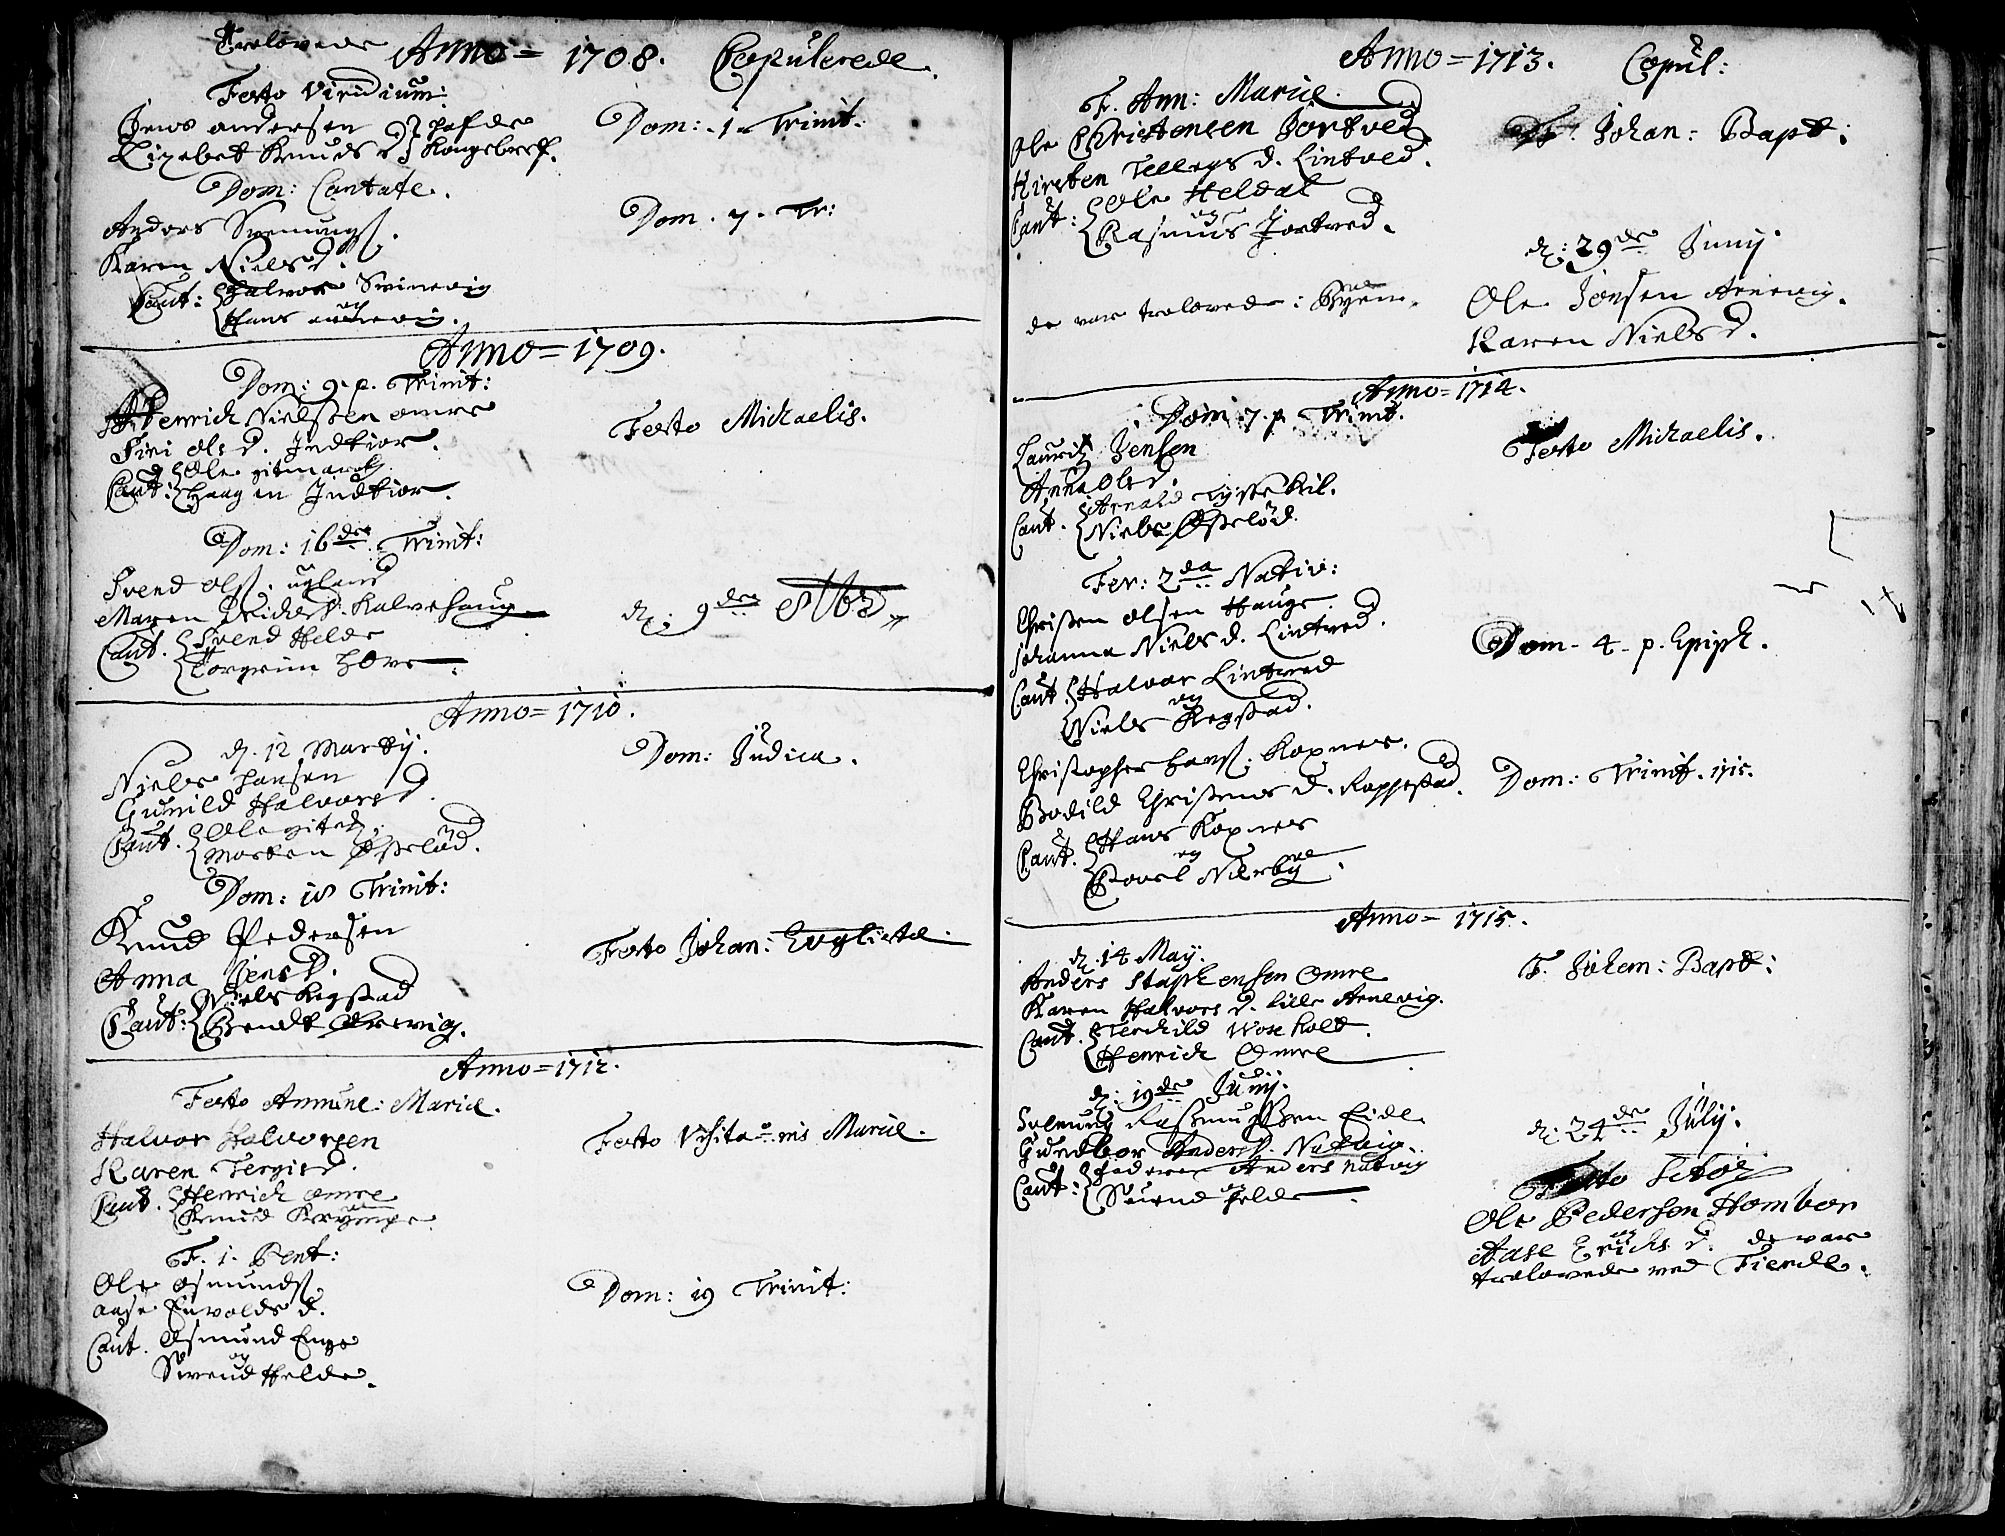 Trolovede Anno = 1708. Copulerede.
Festo Viridium:
Jens andersen
Lizebet Knuds D.
Dom: 1. Trinit:
Dom: Cantate.
Anders
Karen Niels D.
Caut: Halvor Svinevig
og
Hans
Dom. 7. Tr:
Anno = 1709.
Dom: 9. p. Trinit:
Henrich Nielssen omre
Siri ols D. Indtior.
Caut: Ole gitmark
Haagen Indtior.
Festo Michaelis.
Dom: 16de Trinit:
Svend olss. ugland
Maren D. Kalvehaug
Caut. Svend Helde
Torgrim
d. 9de 8tbr.
Anno = 1710.
d. 12 Martij.
Niels Hansen
Gunild Halvors D.
Caut. Ole
Morten Østeröd.
Dom: Judica.
Dom: 18 Trinit:
Knud Pedersen
Anna Jens D.
Caut: Niels Regstad
Bendt Arevig.
Festo Johan: Evglistæ.
Anno = 1712.
Festo Annunc: Mariæ.
Halvor Halvorsen
Karen Tergis D.
Caut. Henrich omre
Knud
Festo Visita-nis Mariæ.
F. 1. Pent:
Ole osmundss.
aase Envolds d.
Caut. Osmund Enge
og
Svend Helde.
Dom: 19 Trinit:
Anno = 1713. Copul:
F. Ann: Mariæ.
Ole Christensen Jortved
Kirsten Tellegs d. Lintved.
Caut: Ole Heldal
og
Rasmus Jortved.
F. Johan: Bapt:
de var trolovede:
d: 29de Junij
Ole Jensen Arnevig.
Karen Niels D.
Anno = 1714.
Dom 7. p. Trinit.
Lauritz Jensen
Anna Ols d.
Caut. Arnold
Niels Østeröd.
Festo Michaelis.
Fer: 2da Nativ:
Christen Olsen Hauge.
Johanna Niels d. Lintved.
Caut. Halvor Lintved
og
Niels Regstad.
Dom. 4. p. Epiph.
Christopher Hanss. Kopnes.
Bodild Christens d. Roppestad.
Caut. Hans Kopnes
og
Povel Nærbye.
Dom: Trinit. 1715.
Anno = 1715.
d. 14 May.
Anders Staphensen Omre
Karen Halvors d. lille Arnevig.
Caut. Terchild Voxholt.
Henrich Omre
F. Johan: Bapt:
d: 19de Junij.
Salmund Rasmussen Eide
Gundbor Anders D. Natvig.
Caut: Peder Anders Natvig
og
Svend Helde.
d: 24de Julij.
Ole Pedersen Hombor
og
Aase Erichs D. de var
trolovede ved Fierde.